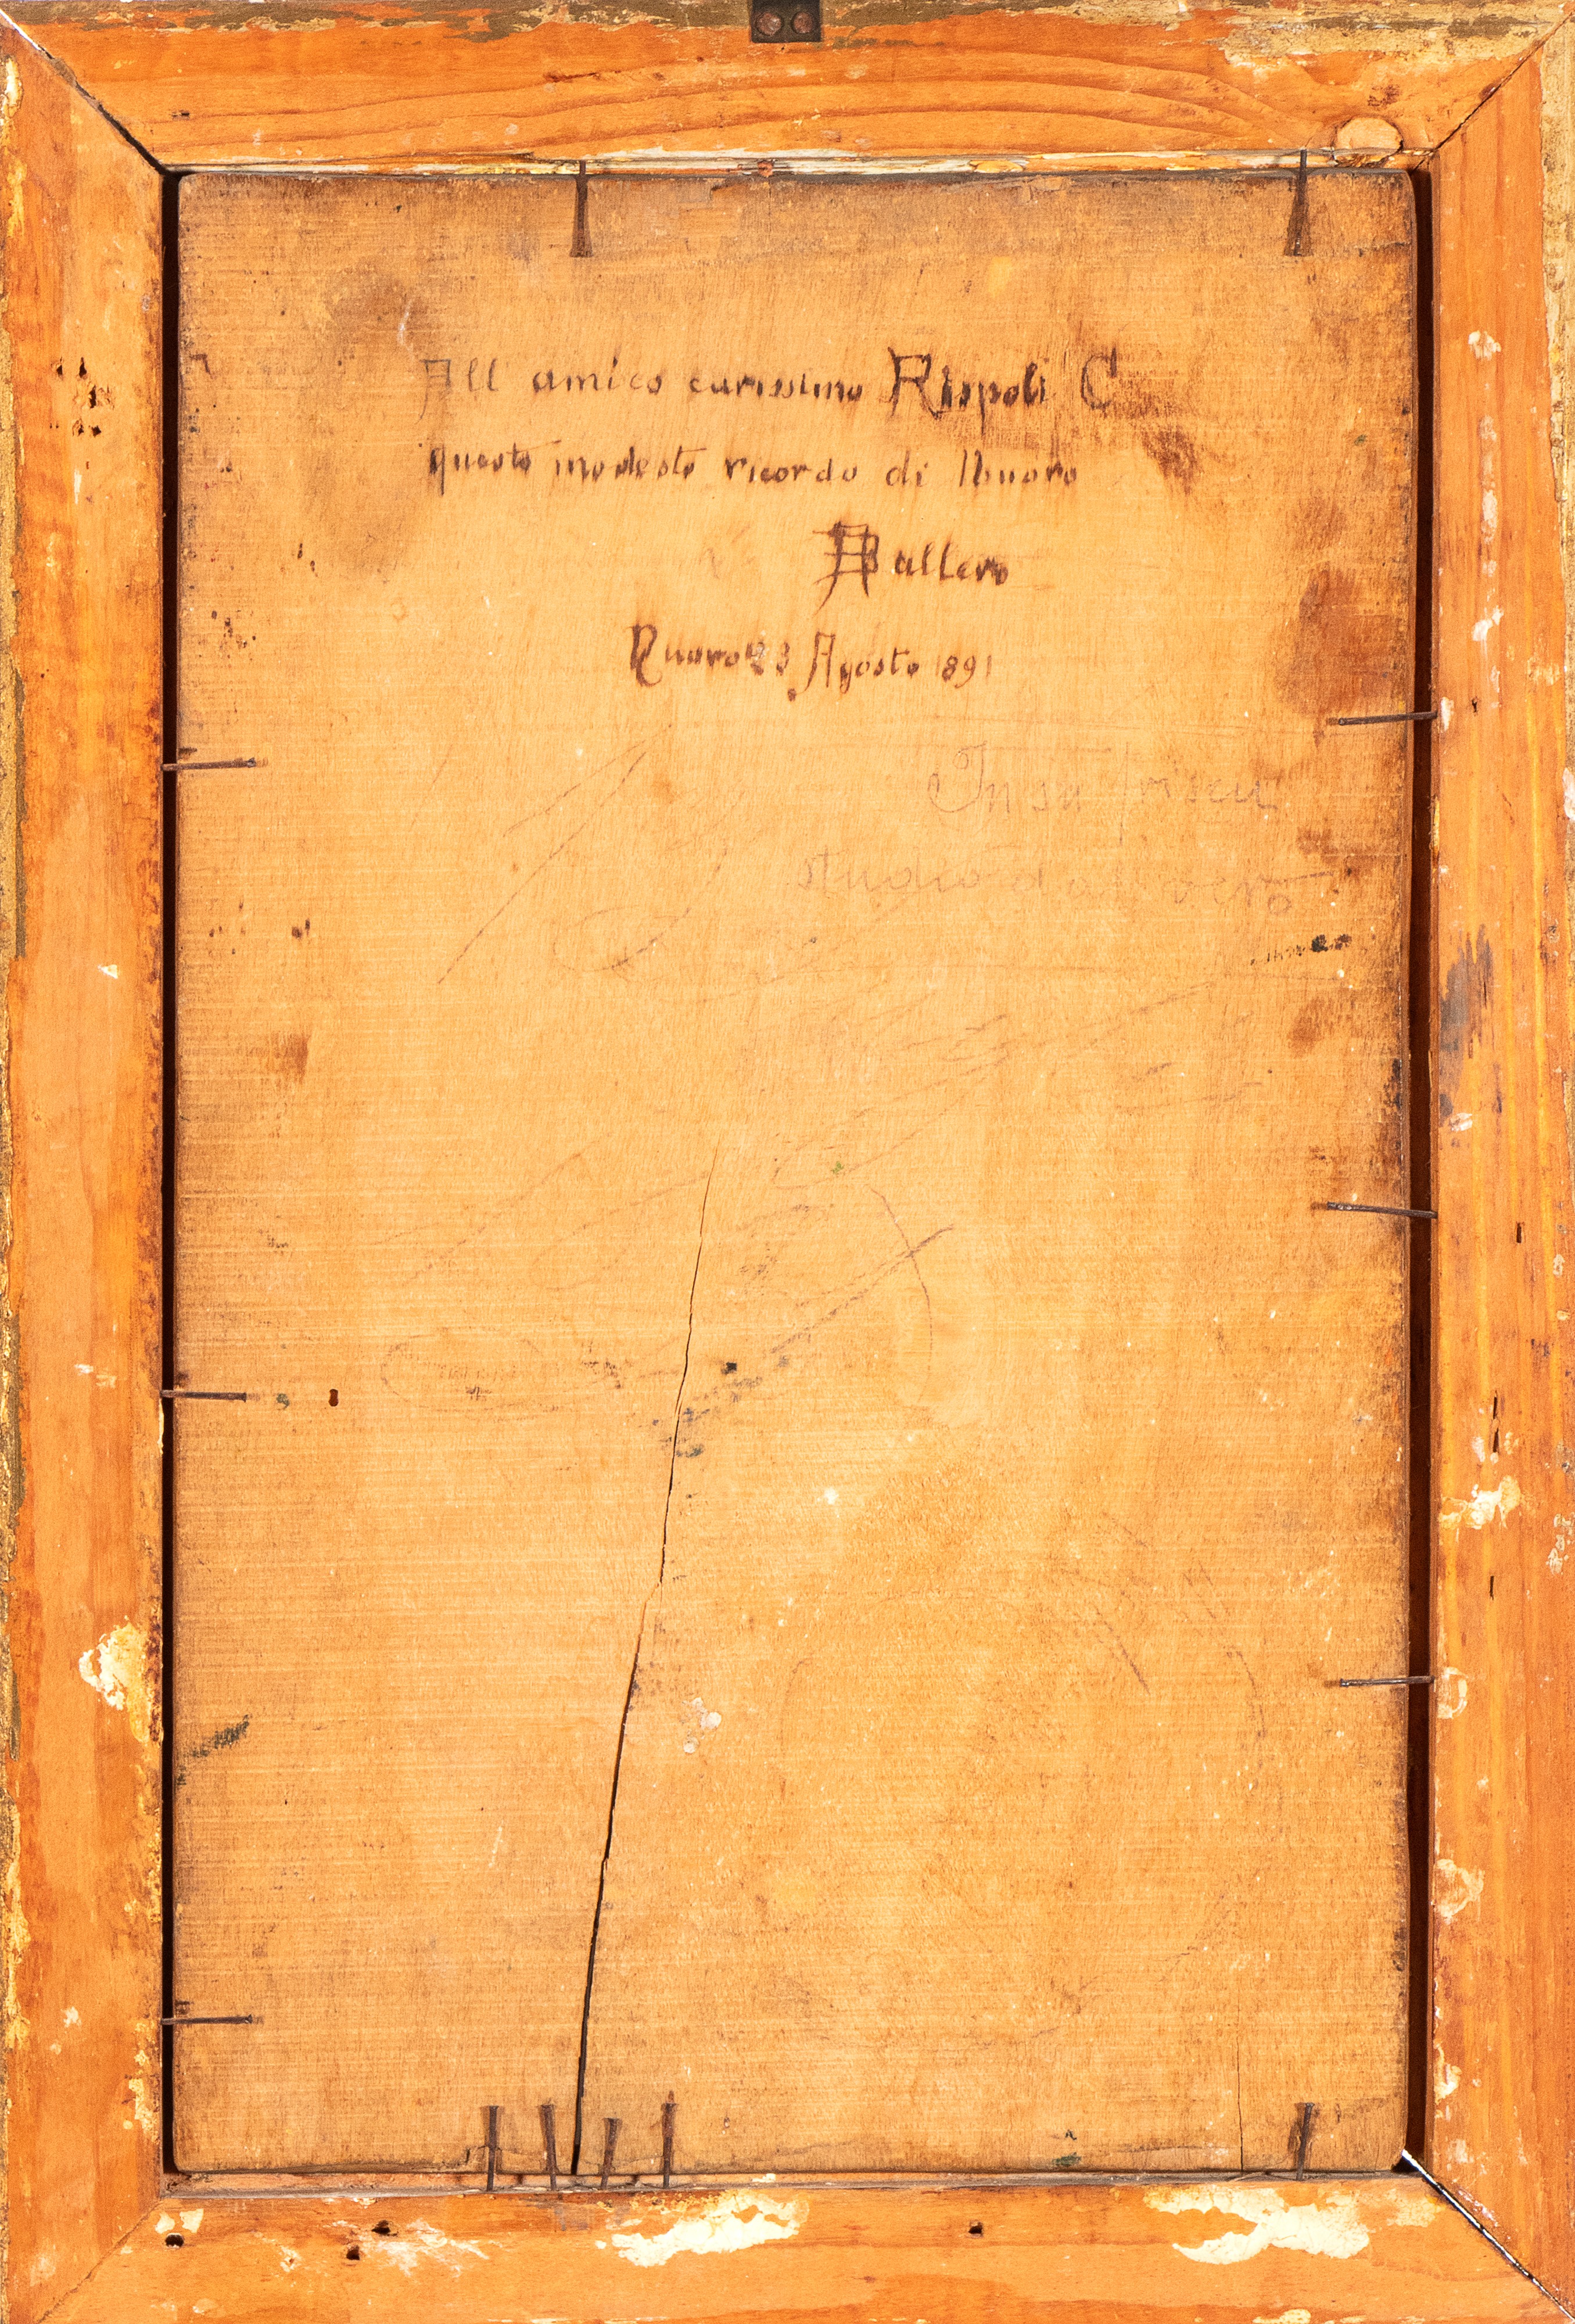 All amico carissimo Rispoli C
questo modesto ricordo di Nuoro
A Ballero
Nuoro 23 Agosto 1891
In sa
studio dal vero